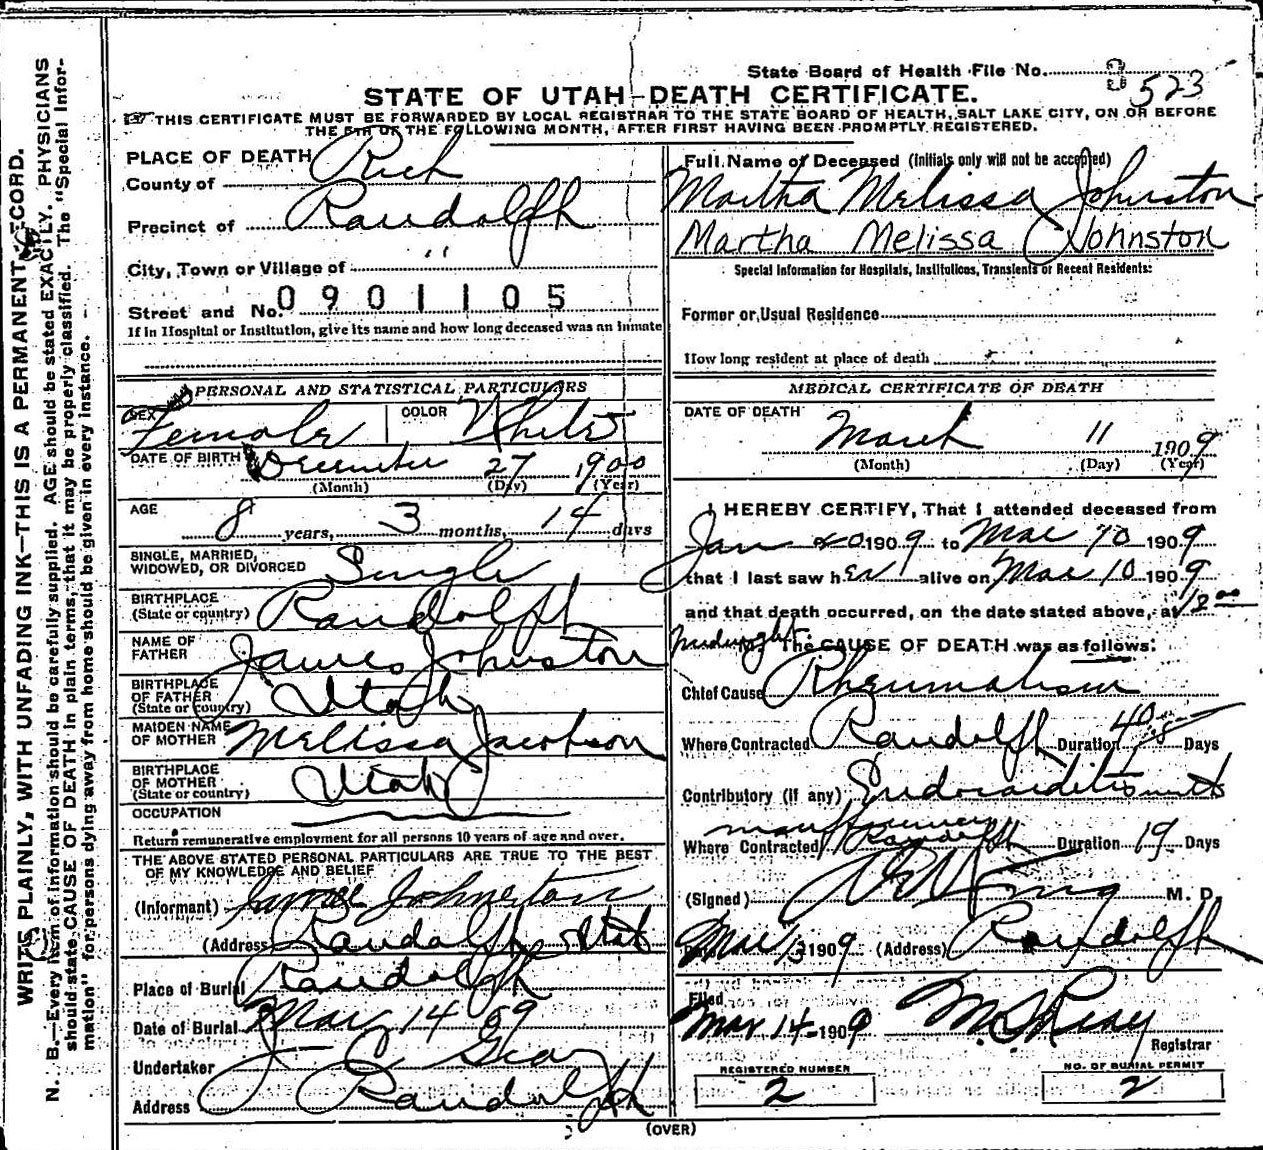 State Board of Health File No. 3 523
STATE OF UTAH—DEATH CERTIFICATE.
THIS CERTIFICATE MUST BE FORWARDED BY LOCAL REGISTRAR TO THE STATE BOARD OF HEALTH, SALT LAKE CITY, ON OR BEFORE
THE 5TH OF THE FOLLOWING MONTH, AFTER FIRST HAVING BEEN PROMPTLY REGISTERED.
WRITE PLAINLY, WITH UNFADING INK—THIS IS A PERMANENT RECORD.
N. B.—Every item of information should be carefully supplied. AGE should be stated EXACTLY. PHYSICIANS
should state CAUSE OF DEATH in plain terms, that it may be properly classified. The "Special Infor-
mation" for persons dying away from home should be given in every instance.
PLACE OF DEATH
County of Rich
Precinct of Randolph
City, Town or Village of "
Street and No. 0901105
If in Hospital or Institution, give its name and how long deceased was an inmate
PERSONAL AND STATISTICAL PARTICULARS
SEX Female COLOR White
DATE OF BIRTH December 27 1900
(Month) (Day) (Year)
AGE 8 years, 3 months, 14 days
SINGLE, MARRIED,
WIDOWED, OR DIVORCED Single
BIRTHPLACE
(State or country) Randolph
NAME OF
FATHER James Johnston
BIRTHPLACE
OF FATHER
(State or country) Utah
MAIDEN NAME
OF MOTHER Melissa Jacobson
BIRTHPLACE
OF MOTHER
(State or country) Utah
OCCUPATION
Return remunerative employment for all persons 10 years of age and over.
THE ABOVE STATED PERSONAL PARTICULARS ARE TRUE TO THE BEST
OF MY KNOWLEDGE AND BELIEF
(Informant) Johnston
(Address) Randolph Utah
Place of Burial Randolph
Date of Burial Mar 14 09
Undertaker J C Gray
Address Randolph
Full Name of Deceased (Initials only will not be accepted)
Martha Melissa Johnston
Martha Melissa Johnston
Special Information for Hospitals, Institutions, Transients or Recent Residents:
Former or Usual Residence
How long resident at place of death
MEDICAL CERTIFICATE OF DEATH
DATE OF DEATH
March 11 1909
(Month) (Day) (Year)
I HEREBY CERTIFY, That I attended deceased from
Jan 1909 to Mar 10 1909
that I last saw her alive on Mar 10 1909
and that death occurred, on the date stated above, at 12 00
midnight M. The CAUSE OF DEATH was as follows:
Chief Cause Rheumatism
Where Contracted Randolph Duration 48 Days
Contributory (if any) Endocarditis with
Where Contracted Randolph Duration 19 Days
(Signed) M. D.
Mar 13 1909 (Address) Randolph
Filed
Mar 14 1909
Registrar
REGISTERED NUMBER
2
NO. OF BURIAL PERMIT
2
(OVER)